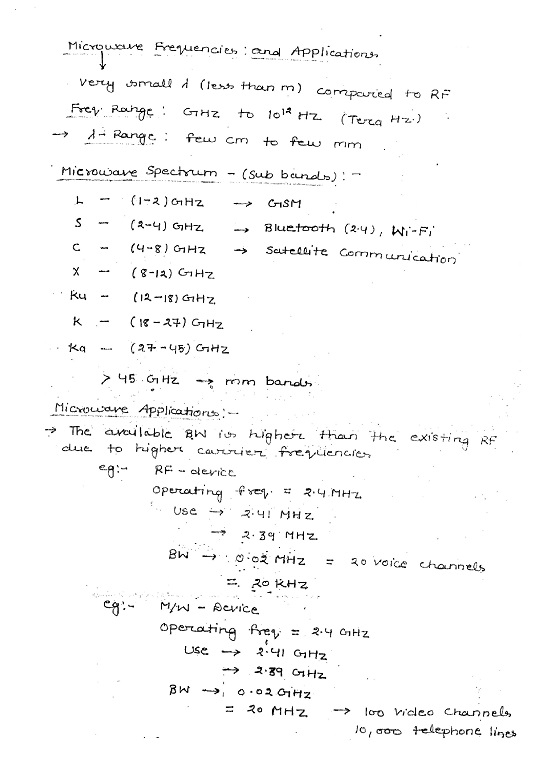 Microwave Frequencies : and Applications
↓
Very small λ (less than m) compared to RF
Freq. Range : GHz to 10¹² Hz (Tera Hz.)
→ λ - Range : few cm to few mm
Microwave Spectrum - (Sub bands) : -
L - (1-2) GHz → GSM
S - (2-4) GHz → Bluetooth (2.4), Wi-Fi
C - (4-8) GHz → Satellite Communication
X - (8-12) GHz
Ku - (12-18) GHz
K - (18-27) GHz
Ka - (27-45) GHz
> 45 GHz → mm bands
Microwave Applications:-
→ The available BW is higher than the existing RF
due to higher carrier frequencies
eg:- RF - device
Operating freq. = 2.4 MHz
Use → 2.41 MHz
→ 2.39 MHz
BW → 0.02 MHz = 20 voice channels
= 20 KHz
eg:- M/W - Device
Operating freq = 2.4 GHz
Use → 2.41 GHz
→ 2.39 GHz
BW → 0.02 GHz
= 20 MHz → 100 Video Channels
10,000 telephone lines